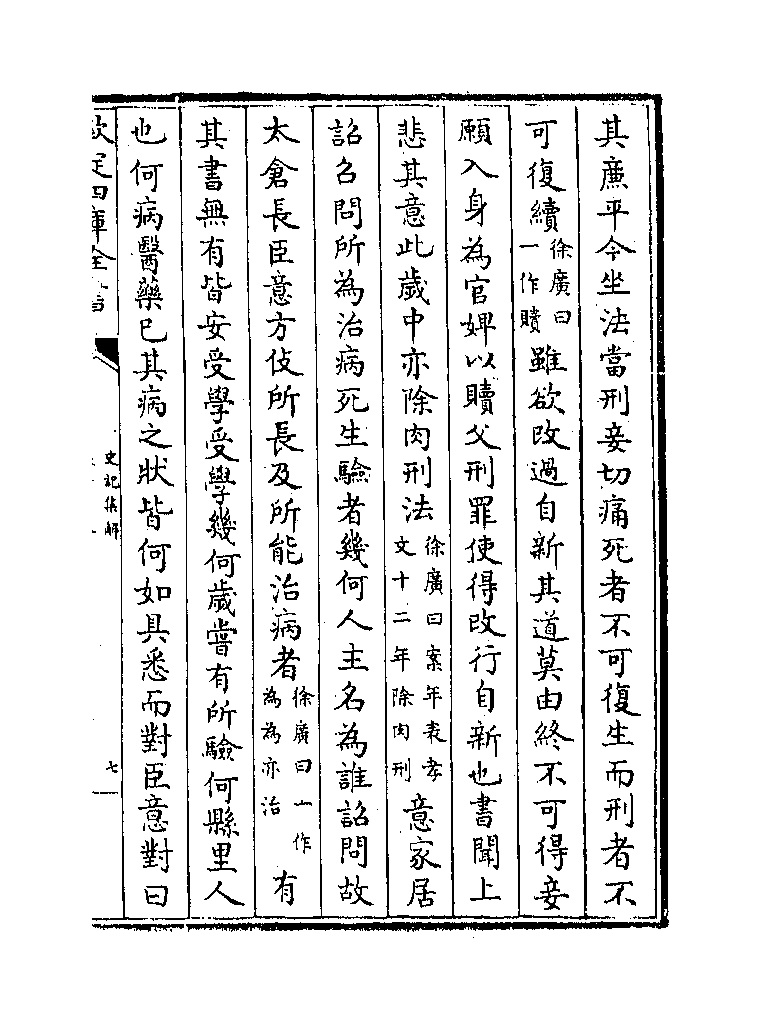 其廉平今坐法當刑妾切痛死者不可復生而刑者不
可復續徐廣曰一作贖雖欲改過自新其道莫由終不可得妾
願入身為官婢以贖父刑罪使得改行自新也書聞上
悲其意此歲中亦除肉刑法徐廣曰案年表孝文十二年除肉刑意家居
詔召問所為治病死生驗者幾何人主名為誰詔問故
太倉長臣意方伎所長及所能治病者徐廣曰一作為為亦治有
其書無有皆安受學受學幾何歲嘗有所驗何縣里人
也何病醫藥已其病之狀皆何如具悉而對臣意對曰
欽定四庫全書
史記集解
七